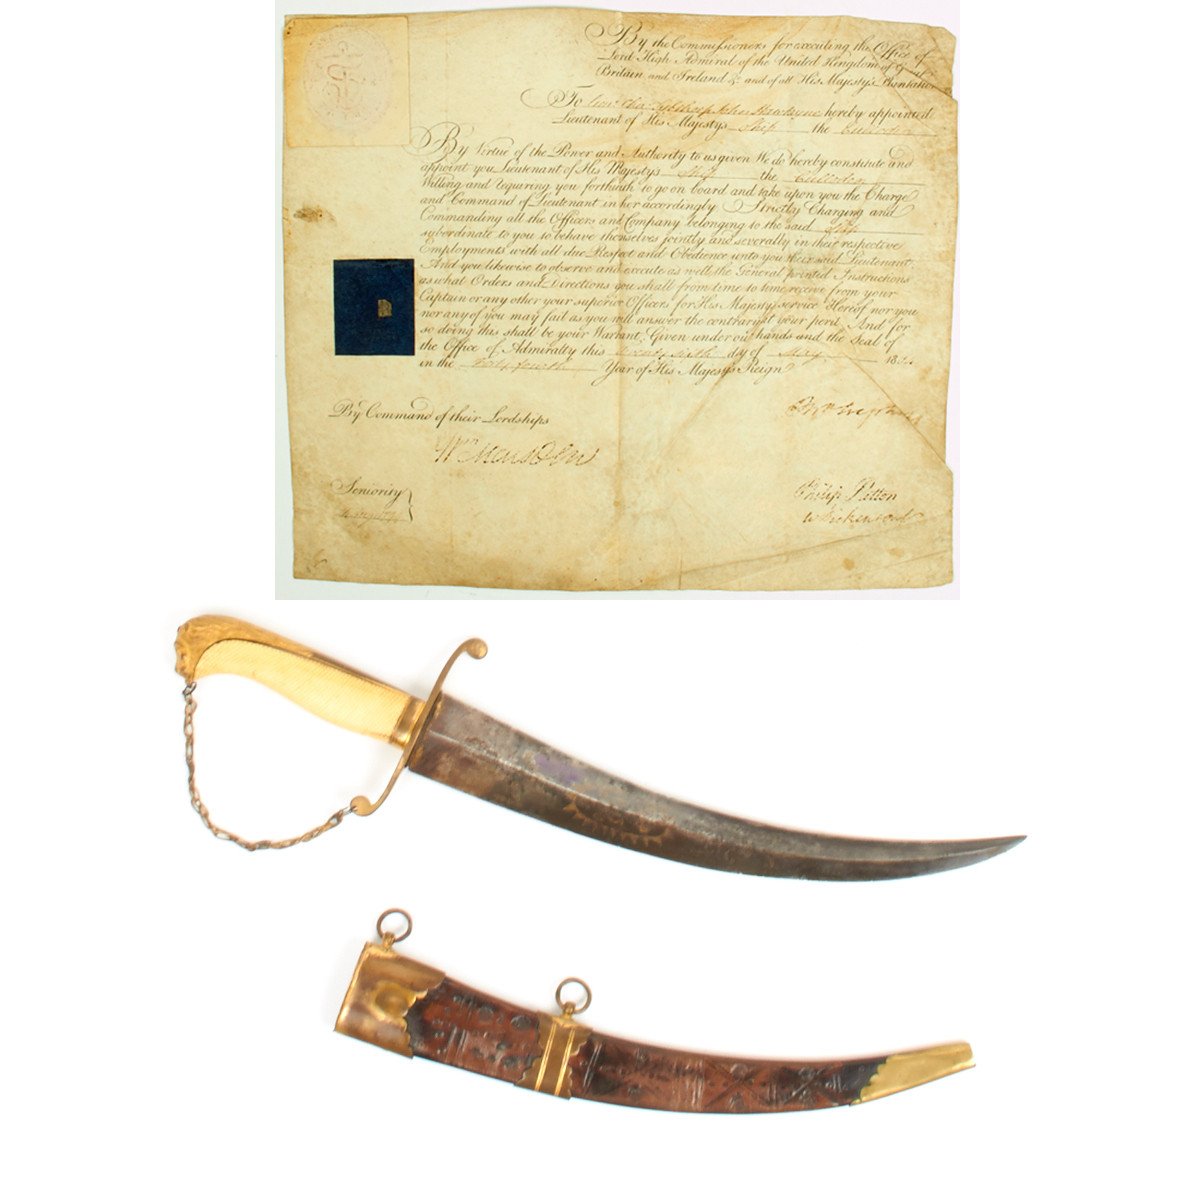 By the Commissioners for executing the Office of
Lord High Admiral of the United Kingdom of Great
Britain and Ireland &c. and of all His Majestys Plantations
To Hawtayne hereby appointed
Lieutenant of His Majestys Ship the Culloden
By Virtue of the Power and Authority to us given We do hereby constitute and
appoint you Lieutenant of His Majestys Ship the Culloden
Willing and requiring you forthwith to go on board and take upon you the Charge
and Command of Lieutenant in her accordingly Strictly Charging and
Commanding all the Officers and Company belonging to the said Ship
subordinate to you to behave themselves jointly and severally in their respective
Employments with all due Respect and Obedience unto you their said Lieutenant;
And you likewise to observe and execute as well the General printed Instructions
as what Orders and Directions you shall from time to time receive from your
Captain or any other your superior Officers for His Majestys service Hereof nor you
nor any of you may fail as you will answer the contrary at your peril And for
so doing this shall be your Warrant. Given under our hands and the Seal of
the Office of Admiralty this twenty sixth day of May
in the Forty fourth Year of His Majestys Reign
By Command of their Lordships
Wm Marsden
Philip Patton
Seniority